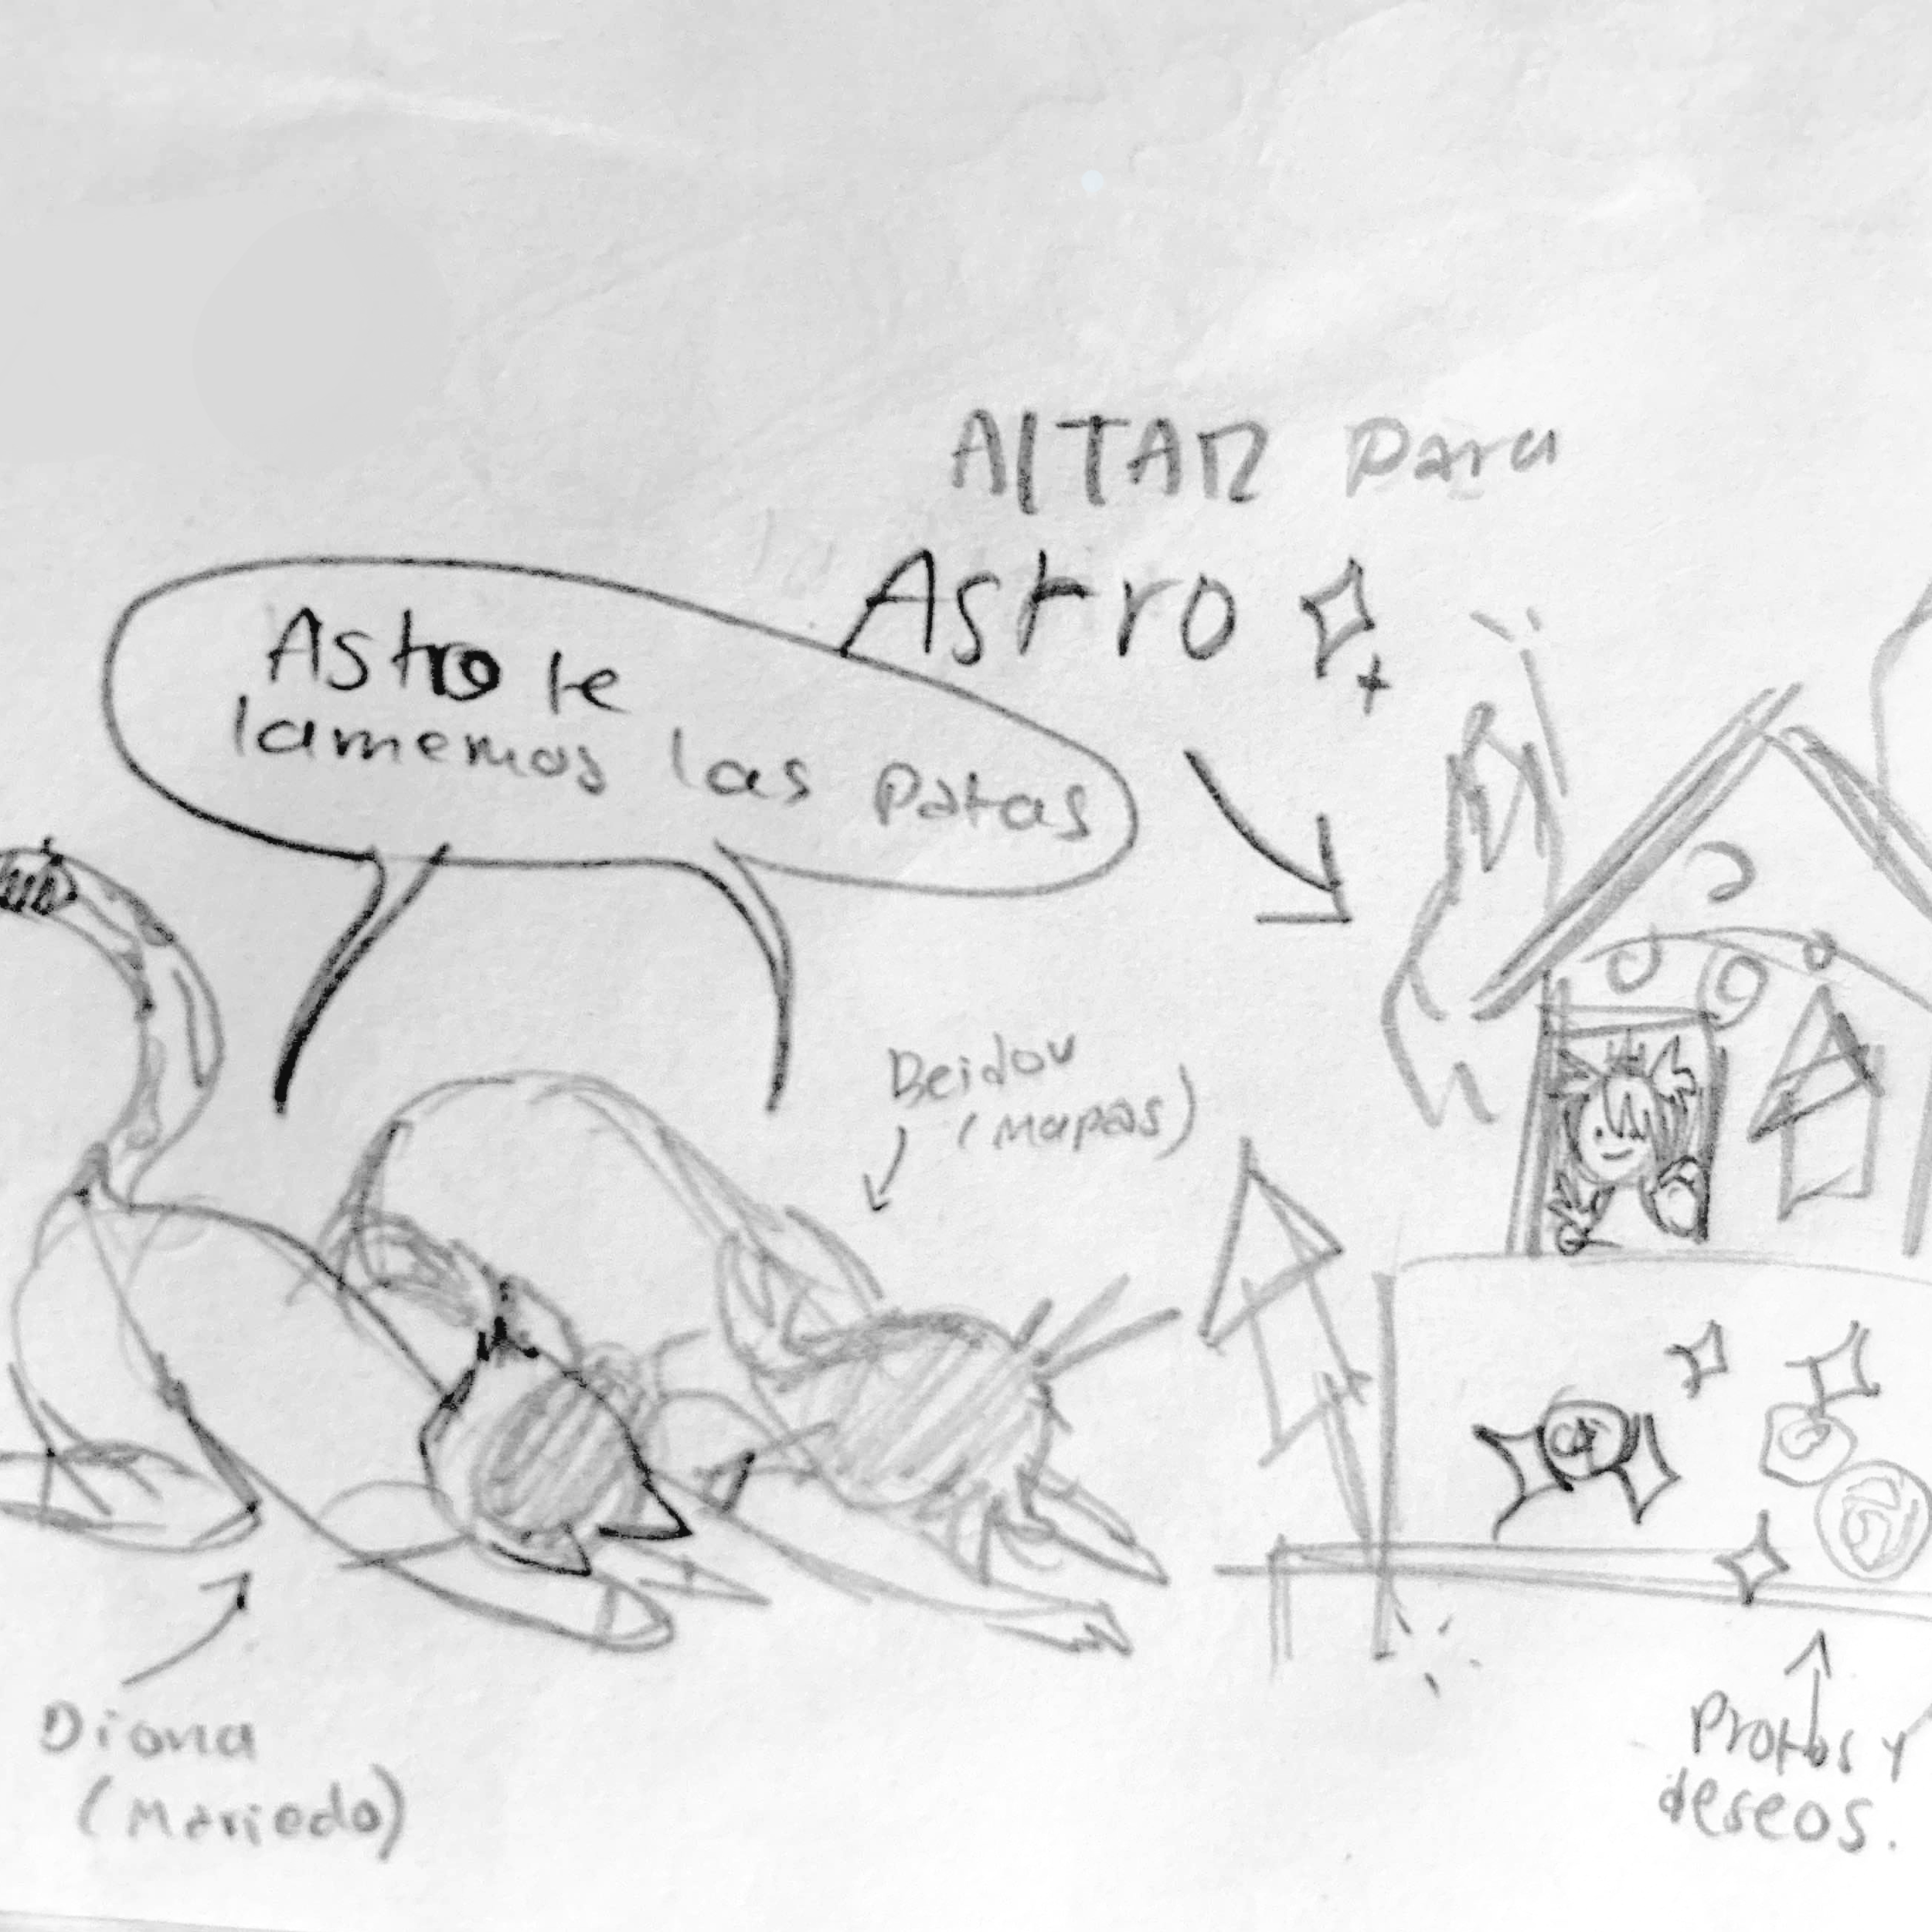 AlTAR para
Astro
Astro te
lamemos las patas
Beidou
(Mapas)
Diona
(Mariedo)
Protos y
deseos.